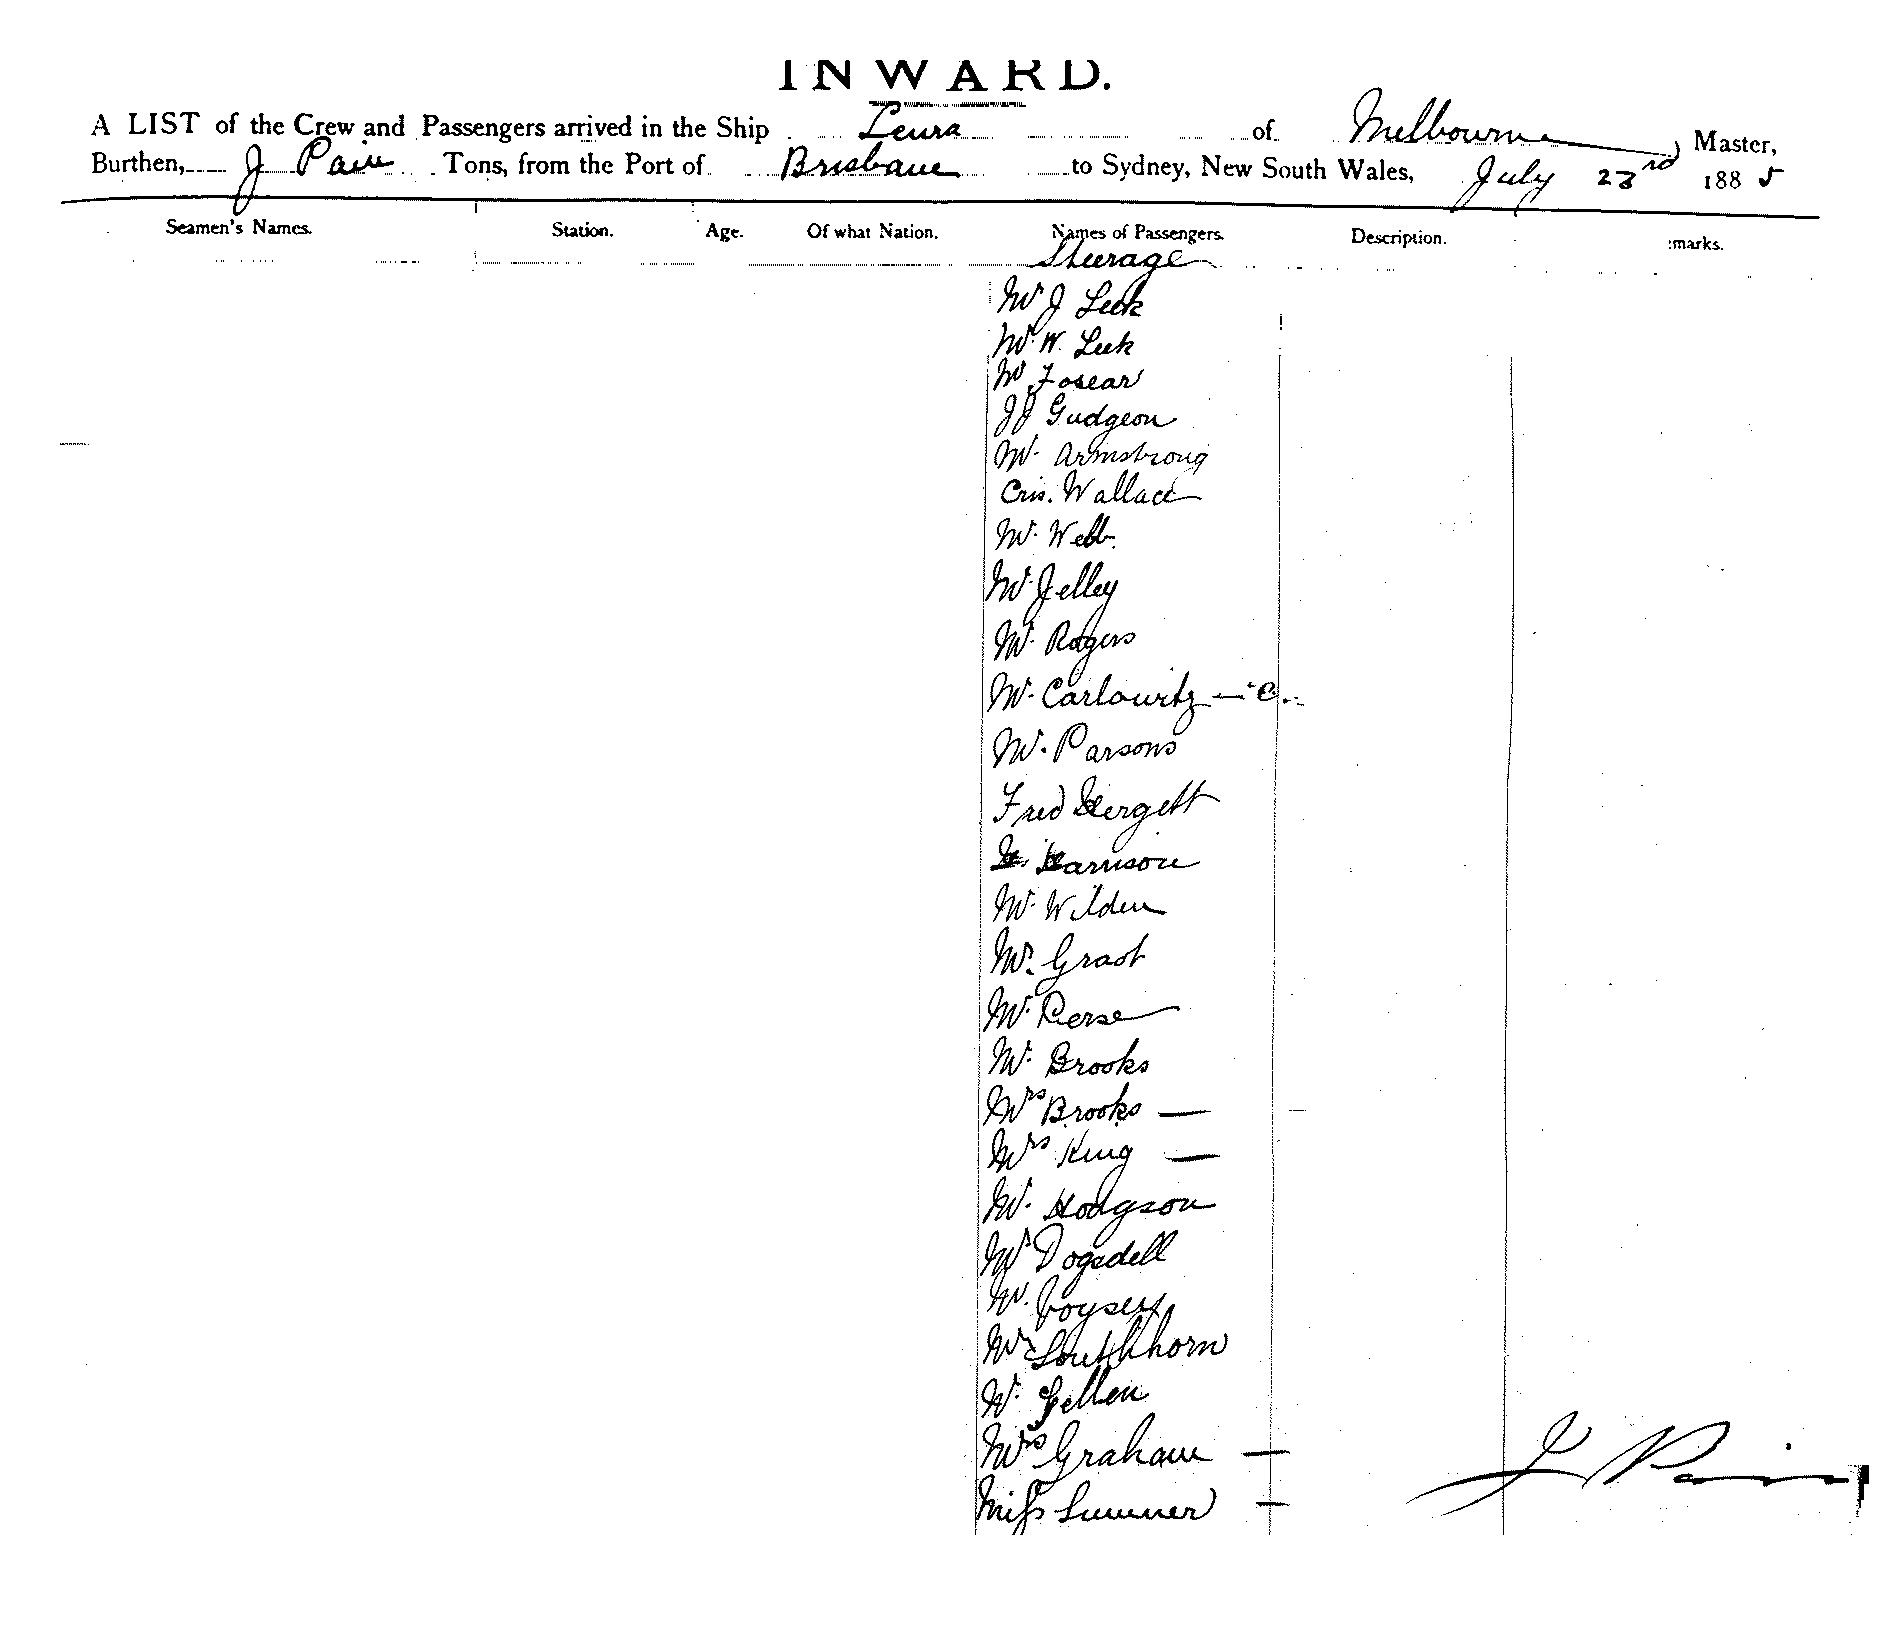 INWARD.
A LIST of the Crew and Passengers arrived in the Ship Leura of Melbourne Master,
Burthen, J Pain Tons, from the Port of Brisbane to Sydney, New South Wales, July 23rd 1885
Seamen's Names. Station. Age. Of what Nation. Names of Passengers. Description. :marks.
Steerage
Mr J Leek
Mr W. Leek
Mr Fosear
JJ Gudgeon
Mr Armstrong
Cris. Wallace
Mr Webb.
Mr Jelley
Mr Rogers
Mr Carlowitz — C.
Mr. Parsons
Fred Hergett
H. Harrison
Mr Wilden
Mr. Graot
Mr Pierse
Mr Brooks
Mrs Brooks —
Mrs King —
Mr. Hodgson
Mr Dogsdell
Mr. Voysey
Mr Southhorn
Mr Gellen
Mrs Graham —
Miss Sumner —
J Pain